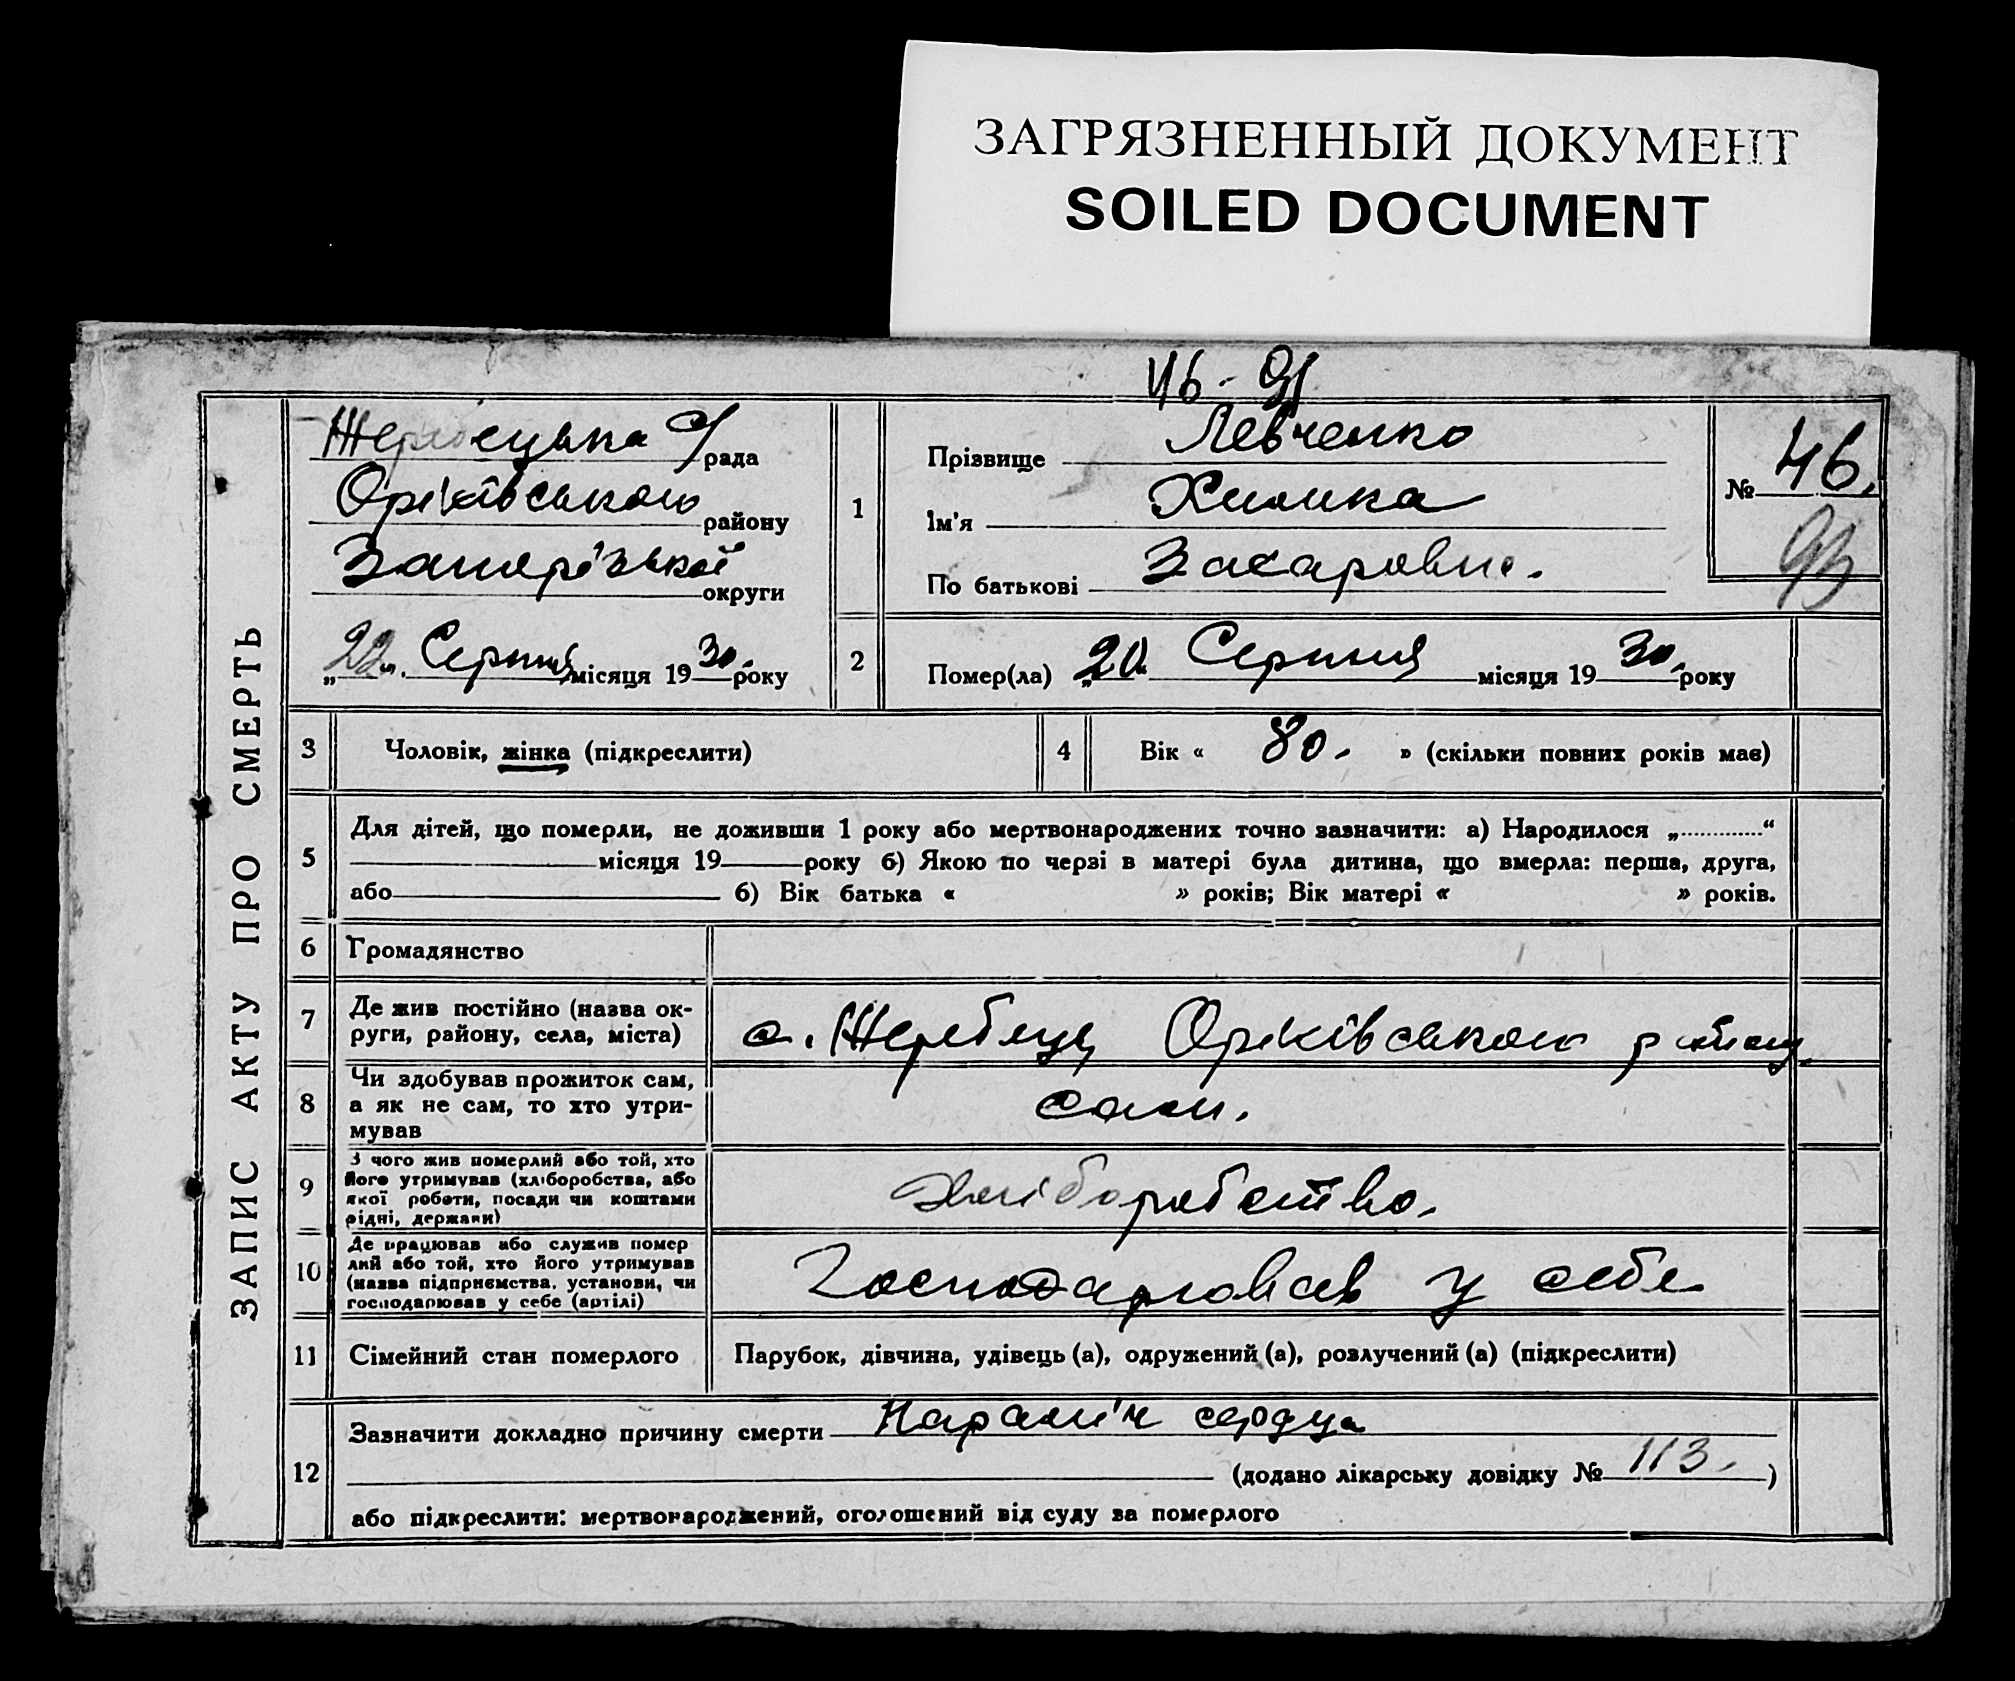 ЗАГРЯЗНЕННЫЙ ДОКУМЕНТ
SOILED DOCUMENT
46 - 91
ЗАПИС АКТУ ПРО СМЕРТЬ
Жеребецька С/рада
Оріхівського району
Запорізької округи
„22“ Серпня місяця 1930. року
1
Прізвище Левченко
Ім'я Химка
По батькові Захаровна.
№ 46.
2
Помер(ла) „20“ Серпня місяця 1930. року
3 Чоловік, жінка (підкреслити)
4 Вік « 80. » (скільки повних років має)
5
Для дітей, що померли, не доживши 1 року або мертвонароджених точно зазначити: а) Народилося „............“
місяця 19 року б) Якою по черзі в матері була дитина, що вмерла: перша, друга,
або б) Вік батька « » років; Вік матері « » років.
6 Громадянство
7
Де жив постійно (назва ок-
руги, району, села, міста)
с. Жеребець Оріхівського району
8
Чи здобував прожиток сам,
а як не сам, то хто утри-
мував
сам.
9
З чого жив померлий або той, хто
його утримував (хліборобства, або
якої роботи, посади чи коштами
рідні, держави)
Хліборобство.
10
Де працював або служив помер
лий або той, хто його утримував
(назва підприємства, установи, чи
господарював у себе (артілі)
Господарював у себе
11 Сімейний стан померлого
Парубок, дівчина, удівець (а), одружений (а), розлучений (а) (підкреслити)
12
Зазначити докладно причину смерти Параліч сердця
(додано лікарську довідку № 113. )
або підкреслити: мертвонароджений, оголошений від суду за померлого